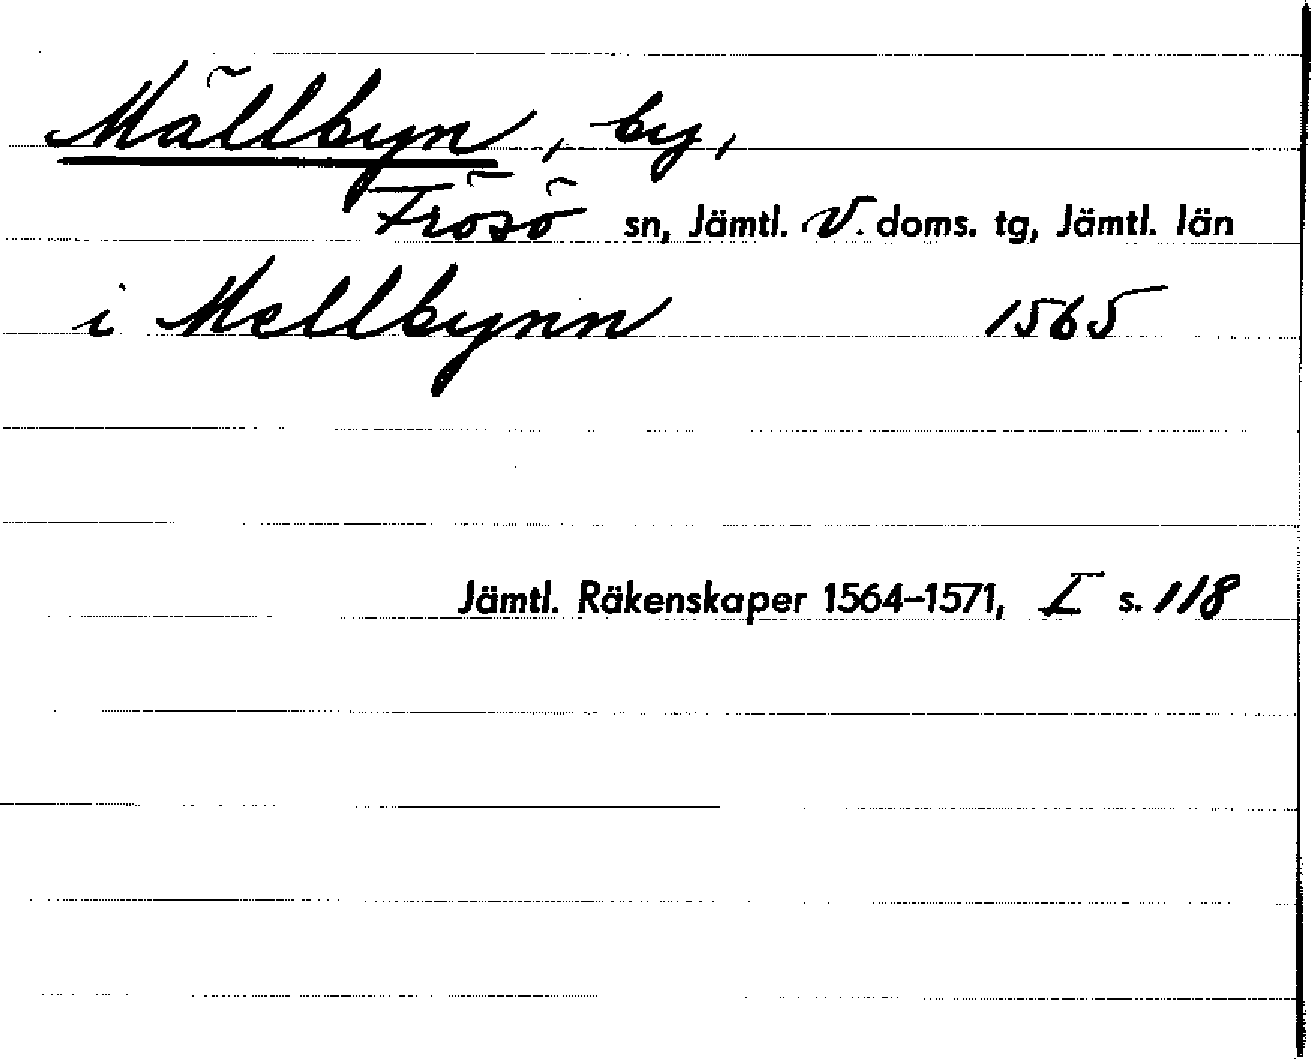 Mällbyn, by,
Frösö sn, Jämtl. V. doms. tg, Jämtl. län
i Mellbynn 1565
Jämtl. Räkenskaper 1564–1571, I s. 118